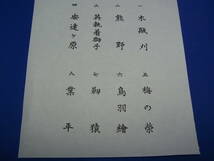 一 水敲刈
二 熊野
三 英執着獅子
四 安達ヶ原
五 梅の榮
六 鳥羽繪
七 靭猿
八 業平